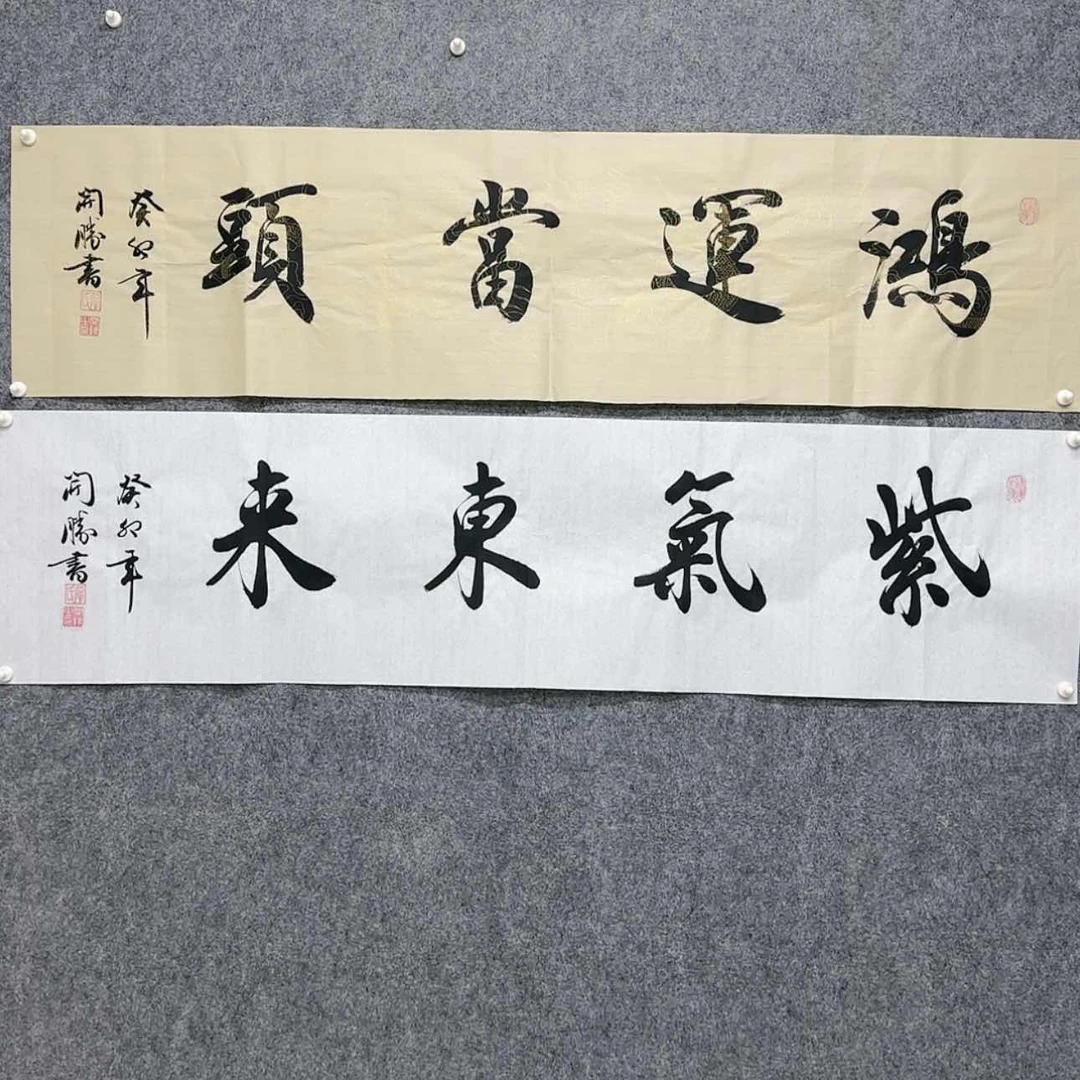 鴻運當頭
癸卯年
開勝書
紫氣東来
癸卯年
開勝書